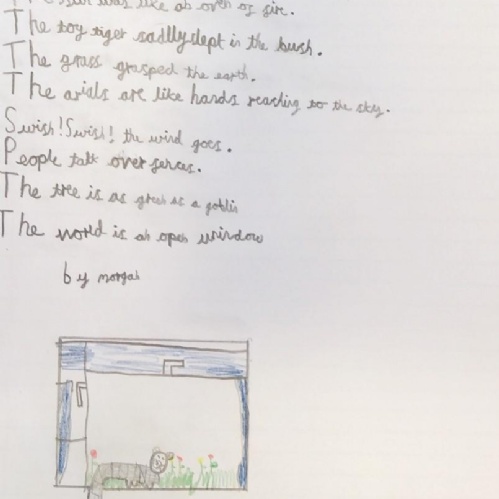 was like an oven of fire.
The toy tiger sadlly slept in the bush.
The grass grasped the earth.
The arials are like hands reaching to the sky.
Swish! Swish! the wind goes.
People talk over fences.
The tree is as green as a goblin
The world is an open window
by morgan